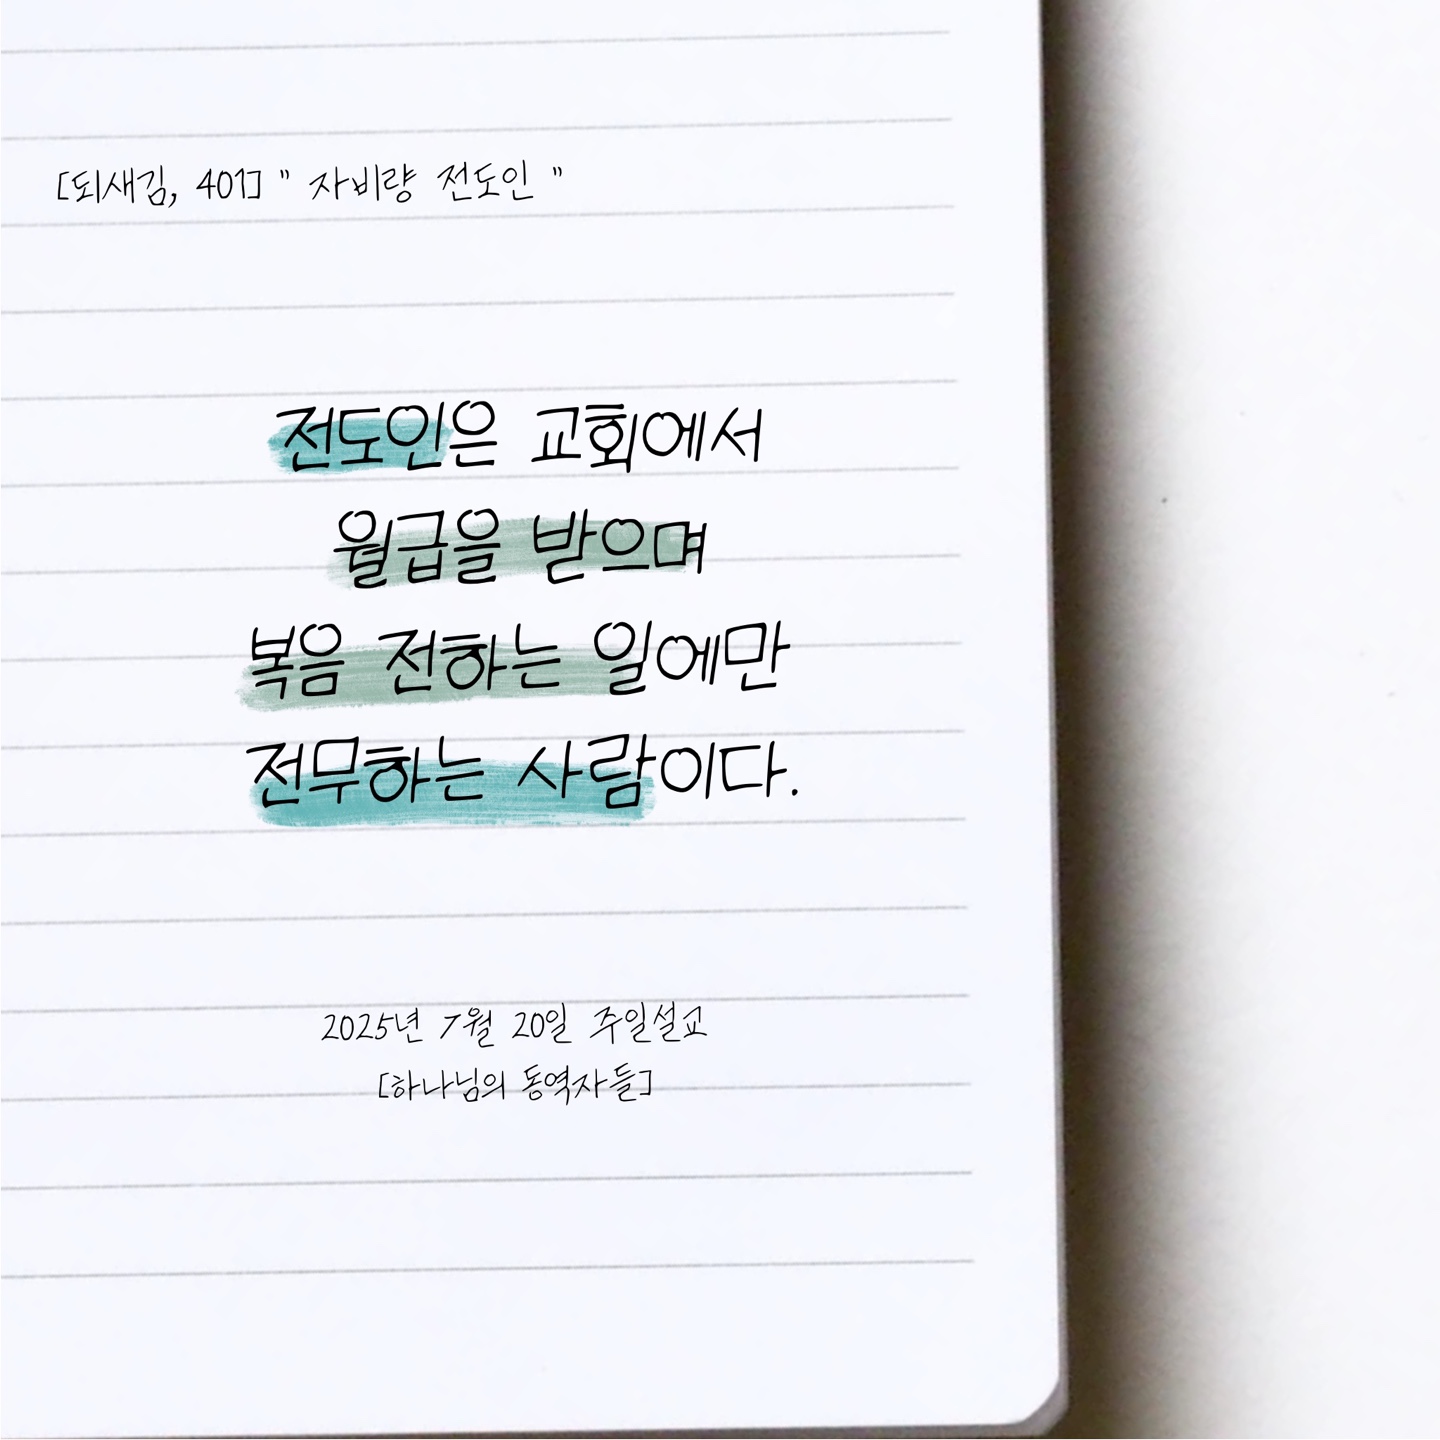 [되새김, 401] " 자비량 전도인 "
전도인은 교회에서
월급을 받으며
복음 전하는 일에만
전무하는 사람이다.
2025년 7월 20일 주일설교
[하나님의 동역자들]